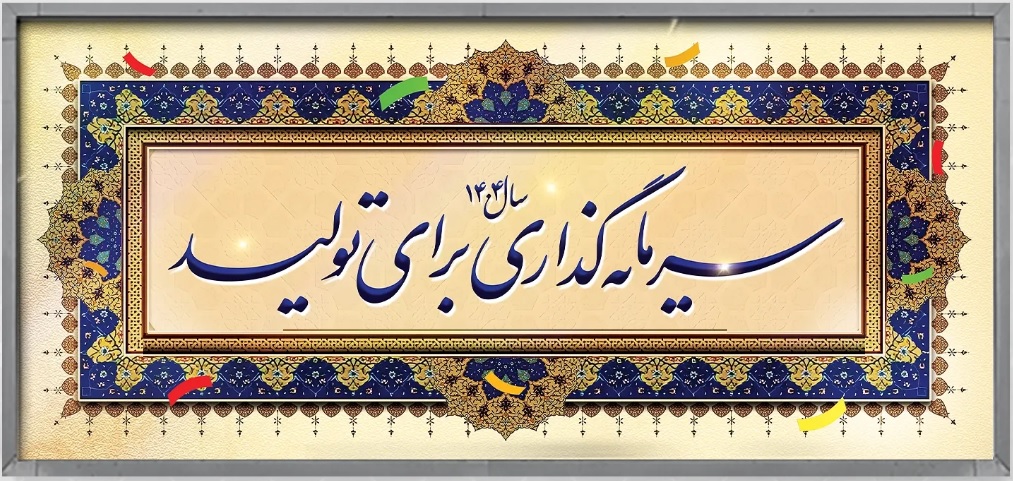 سال ۱۴۰۴
سرمایه گذاری برای تولید